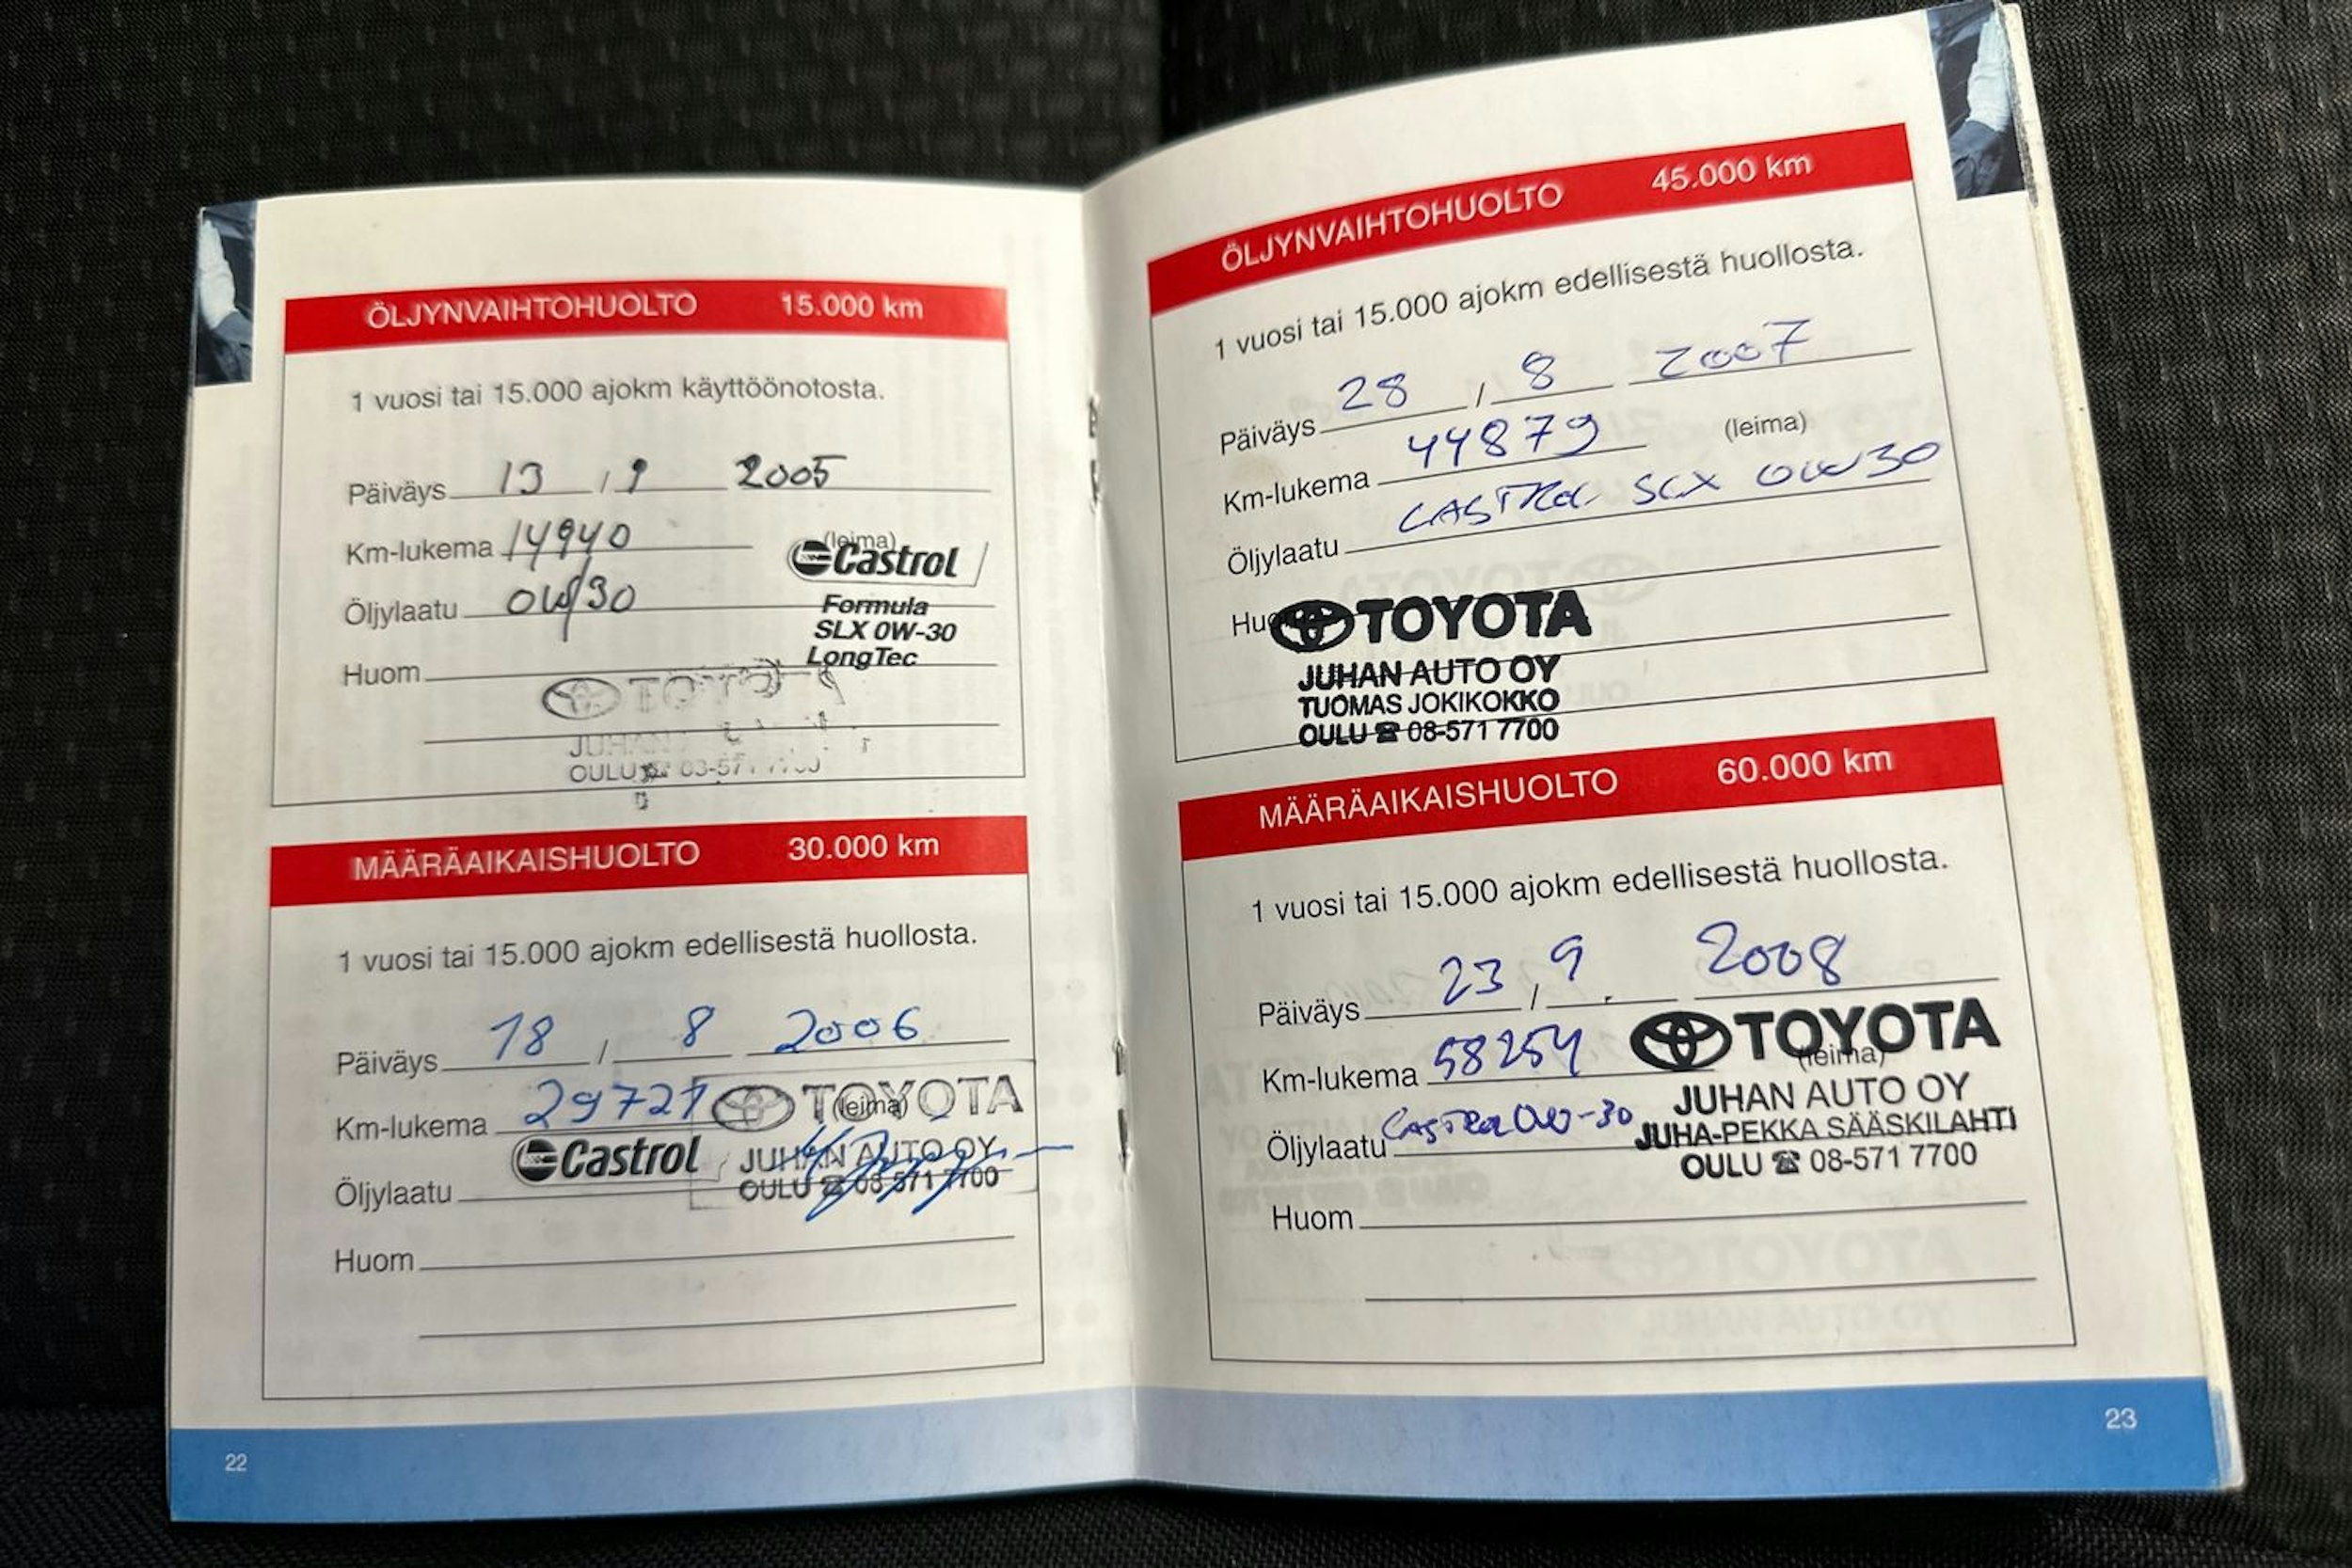 ÖLJYNVAIHTOHUOLTO 15.000 km
1 vuosi tai 15.000 ajokm käyttöönotosta.
Päiväys 13 / 9 2005
Km-lukema 14940 (leima)
Castrol
Öljylaatu 0W/30
Formula
SLX 0W-30
LongTec
Huom
TOYOTA
JUHAN
OULU ☎ 08-571 7700
MÄÄRÄAIKAISHUOLTO 30.000 km
1 vuosi tai 15.000 ajokm edellisestä huollosta.
Päiväys 18 / 8 2006
Km-lukema 29721 (leima)
TOYOTA
Öljylaatu Castrol
JUHAN AUTO OY
OULU ☎ 08-571 7700
Huom
22
ÖLJYNVAIHTOHUOLTO 45.000 km
1 vuosi tai 15.000 ajokm edellisestä huollosta.
Päiväys 28 / 8 2007
Km-lukema 44879 (leima)
Öljylaatu CASTROL SLX 0W30
TOYOTA
JUHAN AUTO OY
TUOMAS JOKIKOKKO
OULU ☎ 08-571 7700
MÄÄRÄAIKAISHUOLTO 60.000 km
1 vuosi tai 15.000 ajokm edellisestä huollosta.
Päiväys 23 / 9 2008
Km-lukema 58254 (leima)
TOYOTA
Öljylaatu CASTROL 0W-30
JUHAN AUTO OY
JUHA-PEKKA SÄÄSKILAHTI
OULU ☎ 08-571 7700
Huom
23